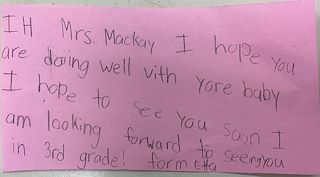 IH Mrs. Mackay I hope you
are doing well vith yore baby
I hope to see you soon I
am looking forward to seeing you
in 3rd grade! form etta